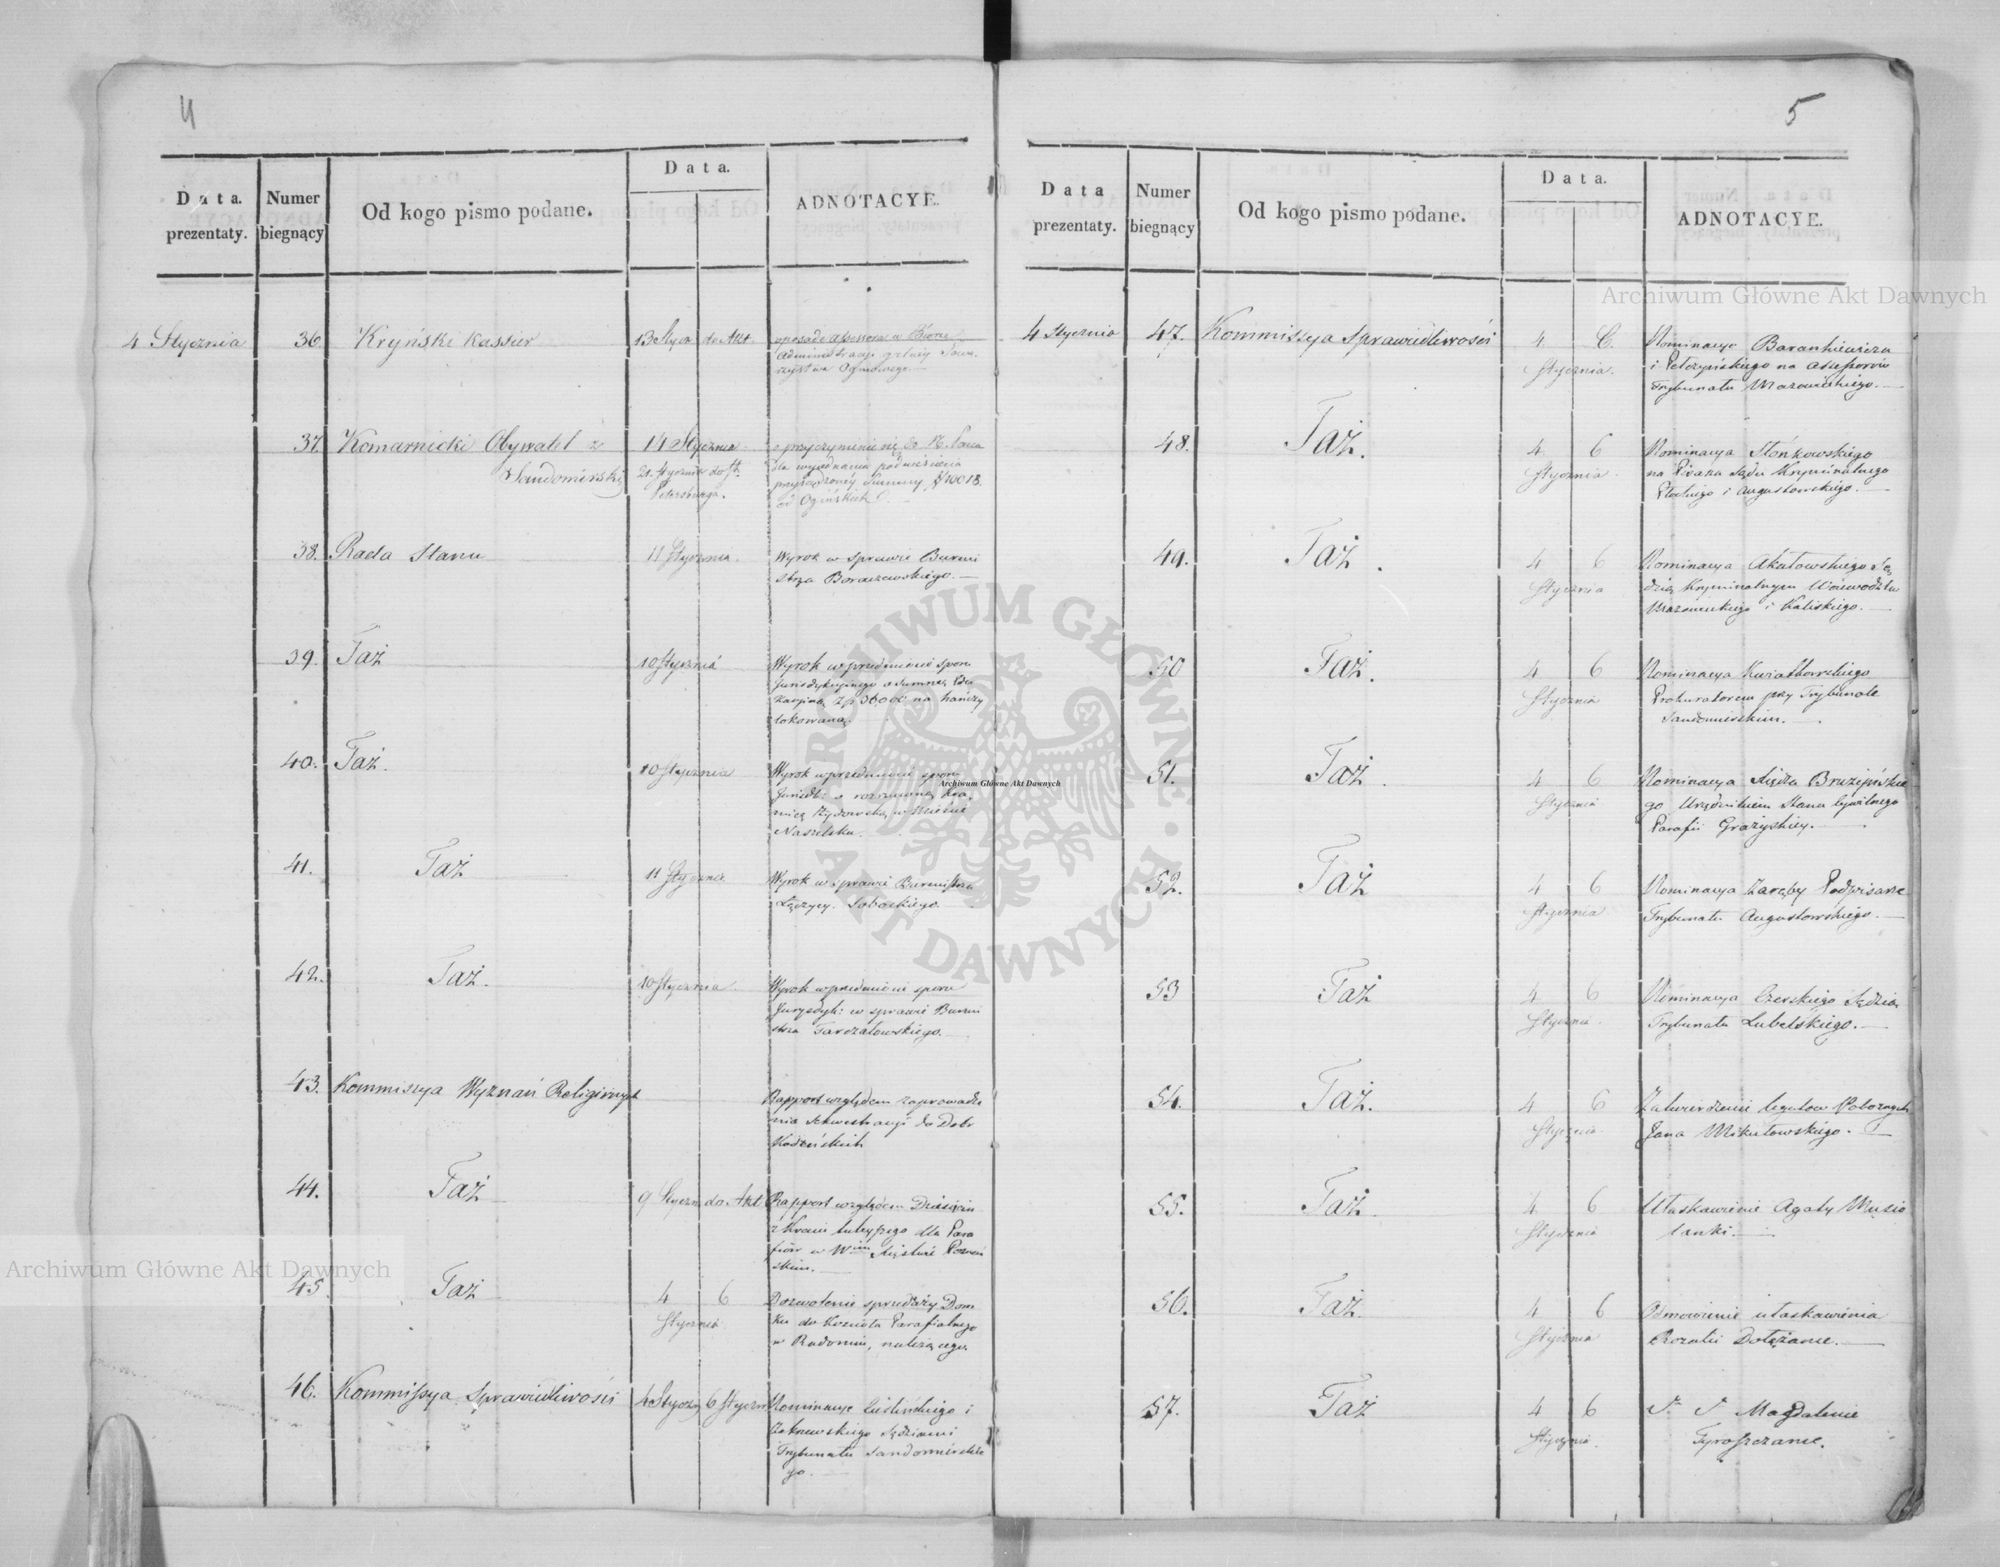 4
Data. prezentaty.
Numer biegnący
Od kogo pismo podane.
Data.
ADNOTACYE.
4 Stycznia 36 Kryński Kassier 13 Stycz do Akt
o posadę Assessora w Biórze
Administracyi
Ogniowego.
37. Komarnicki Obywatel z
Sandomirskiey
14 Stycznia
21. Stycznia do St.
Petersburga.
o przyczynienie się do
dla wyjednania
przysądzoney Summy
od Ogińskich
38. Rada Stanu 11 Stycznia.
Wyrok w sprawie Burmi
strza
39. Taż 10 Stycznia
Wyrok w przedmiocie sporu
Jurisdykcyjnego o Summę
36000 na
lokowaną.
40. Taż. 10 Stycznia
Wyrok w przedmiocie sporu
Jurisd: o
w mieście
Nasielsku.
41. Taż 11 Stycznia
Wyrok w sprawie Burmistrza
Łęczycy. Sobockiego.
42. Taż. 10 Stycznia
Wyrok w przedmiocie sporu
Jurysdyk: w sprawie Burmi
strza Tarczałowskiego.
43. Kommissya Wyznań Religijnych
Rapport względem zaprowadze
nia Sekwestracyi do Dóbr
Kodeńskich
44. Taż 9 Styczn do Akt
Rapport względem Dziesięcin
z Kraiu tuteyszego dla Para
fiów w Wiem Xięstwie Poznań
skim.
45. Taż 4 6
Stycznia
Dozwolenie sprzedaży Dom
ku do Kościoła Parafialnego
w Radomiu, należącego.
46. Kommissya Sprawiedliwości 4 Stycznia 6 Stycznia
Nominacye Cieślińskiego i
Sędziami
Trybunału Sandomirskie
go.
5
Data prezentaty.
Numer biegnący
Od kogo pismo podane.
Data.
ADNOTACYE.
4 Stycznia 47. Kommissya Sprawiedliwości 4 6.
Stycznia.
Nominacye Barankiewicza
i Pełczyńskiego na Assessorów
Trybunału Mazowieckiego.
48. Taż. 4 6
Stycznia
Nominacya Słonkowskiego
na Pisarza Sądu Kryminalnego
Płockiego i Augustowskiego.
49. Taż. 4 6
Stycznia
Nominacya Akułowskiego Sę
dzią Kryminalnym Województw
Mazowieckiego i Kaliskiego.
50 Taż. 4 6
Stycznia
Nominacya Kwiatkowskiego
Prokuratorem przy Trybunale
Sandomirskim.
51. Taż. 4 6
Stycznia
Nominacya Xiędza Bruzepińskie
go Urzędnikiem Stanu Cywilnego
Parafii Grażyskiey.
52. Taż 4 6
Stycznia
Nominacya Zaręby Podpisarze
Trybunału Augustowskiego.
53 Taż 4 6
Stycznia
Nominacya Czerskiego Sędzią
Trybunału Lubelskiego.
54. Taż. 4 6
Stycznia
Zatwierdzenie legatów Pobożnych
Jana Mikułowskiego.
55. Taż. 4 6
Stycznia
Ułaskawienie Agaty Musio
łanki.
56. Taż. 4 6
Stycznia
Odmowienie ułaskawienia
Rozalii
57. Taż 4 6
Stycznia
Magdalenie
Archiwum Główne Akt Dawnych
Archiwum Główne Akt Dawnych
Archiwum Główne Akt Dawnych
ARCHIWUM GŁÓWNE · AKT DAWNYCH ·